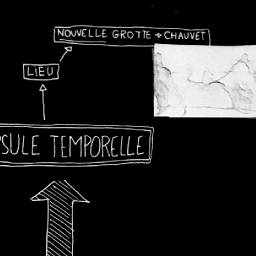 NOUVELLE GROTTE → CHAUVET
LIEU
SULE TEMPORELLE